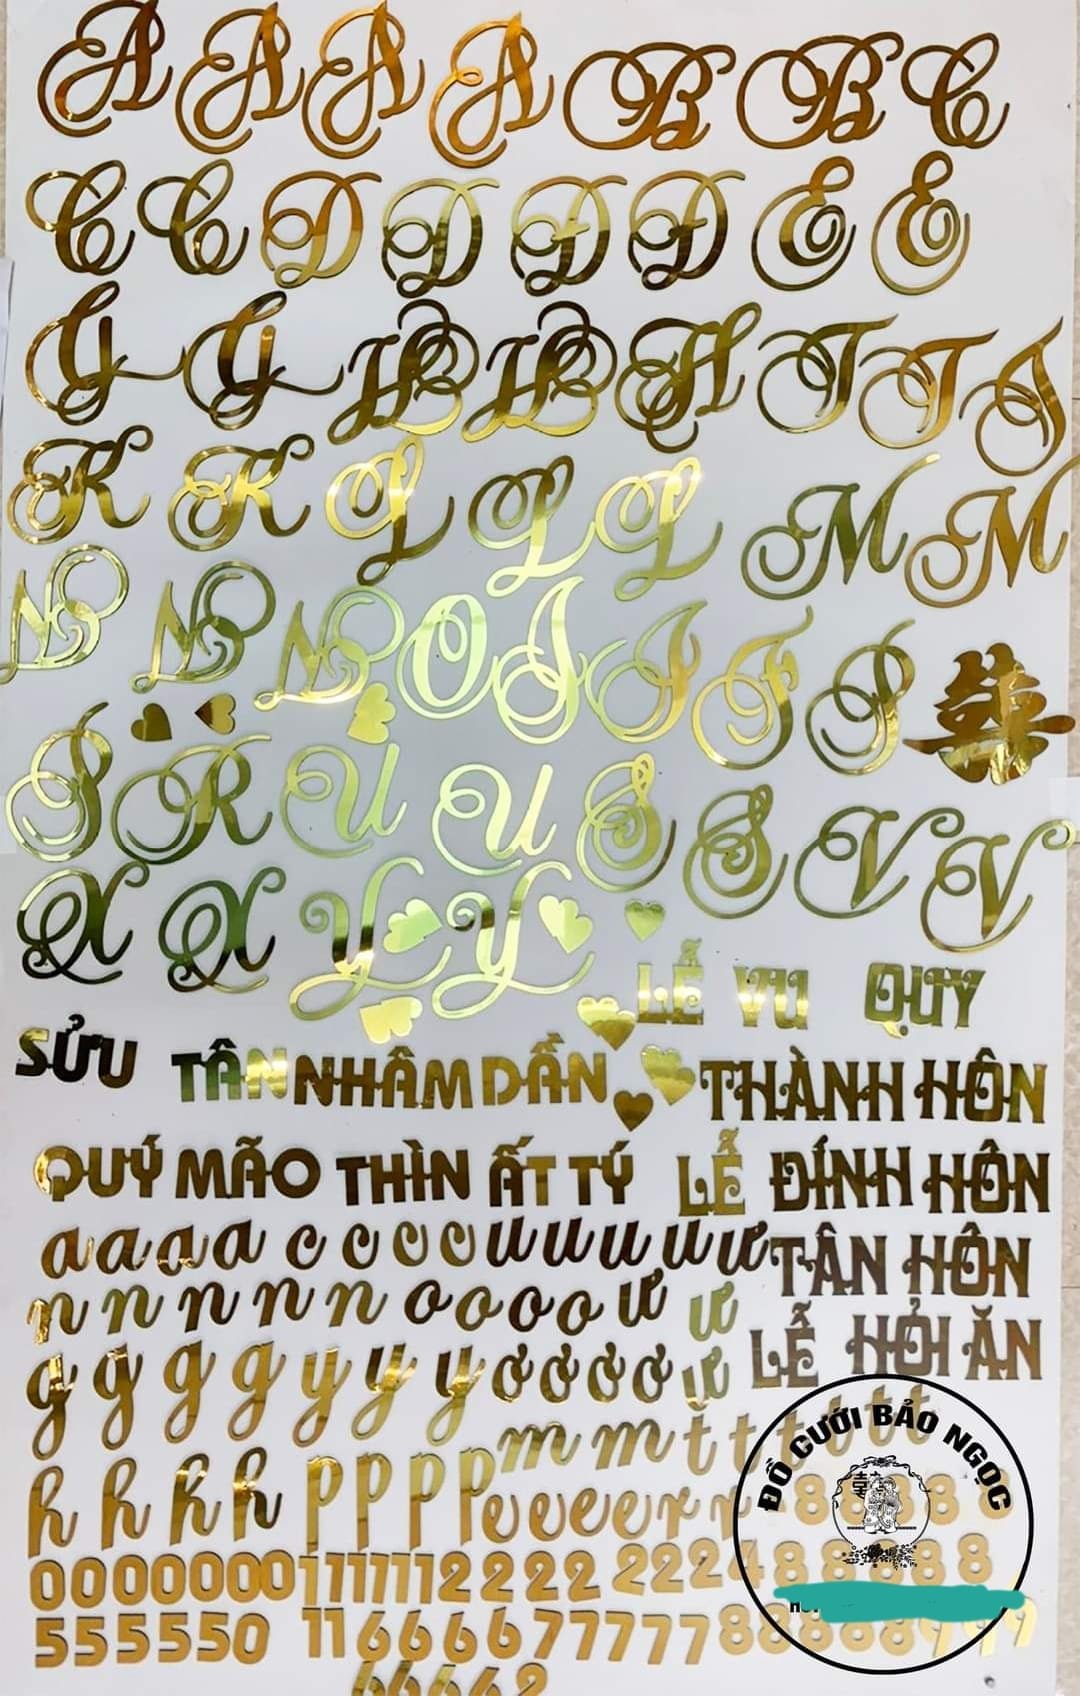 A A A A B B C
C C D D Đ Đ E E
G G H H H T T I
K K L L L M M
N N N O I I F P 囍
P R U U S S V V
X X Y Y
LỄ VU QUY
SỬU TÂN NHÂM DẦN THÀNH HÔN
QUÝ MÃO THÌN ẤT TÝ LỄ ĐÍNH HÔN
a a a a c c c c u u u u ư TÂN HÔN
n n n n n o o o o ư ư
LỄ HỎI ĂN
g g g g y y y ơ ơ ơ ơ ư
m m t t t t t t
h h h h p p p p e e e e r r 8 8 8 8 8
000000011111122222224 8 8 8 8 8
55555011666677778888 8 9 9 9
6 6 6 6 2
ĐỒ CƯỚI BẢO NGỌC